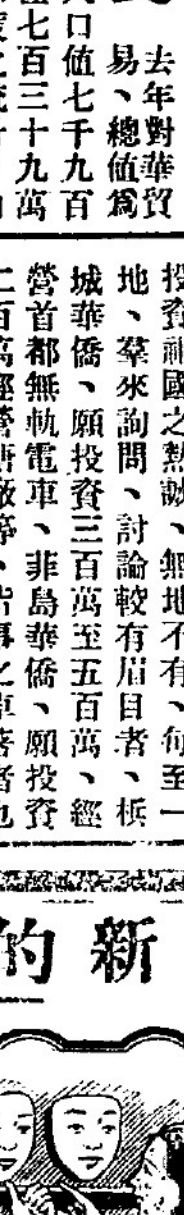 去年對華貿
易、總值爲
口值七千九百
七百三十九萬
投資祖國之熱誠、無地不有、旬至一
地、羣來詢問、討論較有眉目者、檳
城華僑、願投資三百萬至五百萬、經
營首都無軌電車、非島華僑、願投資
二百萬經營
新的